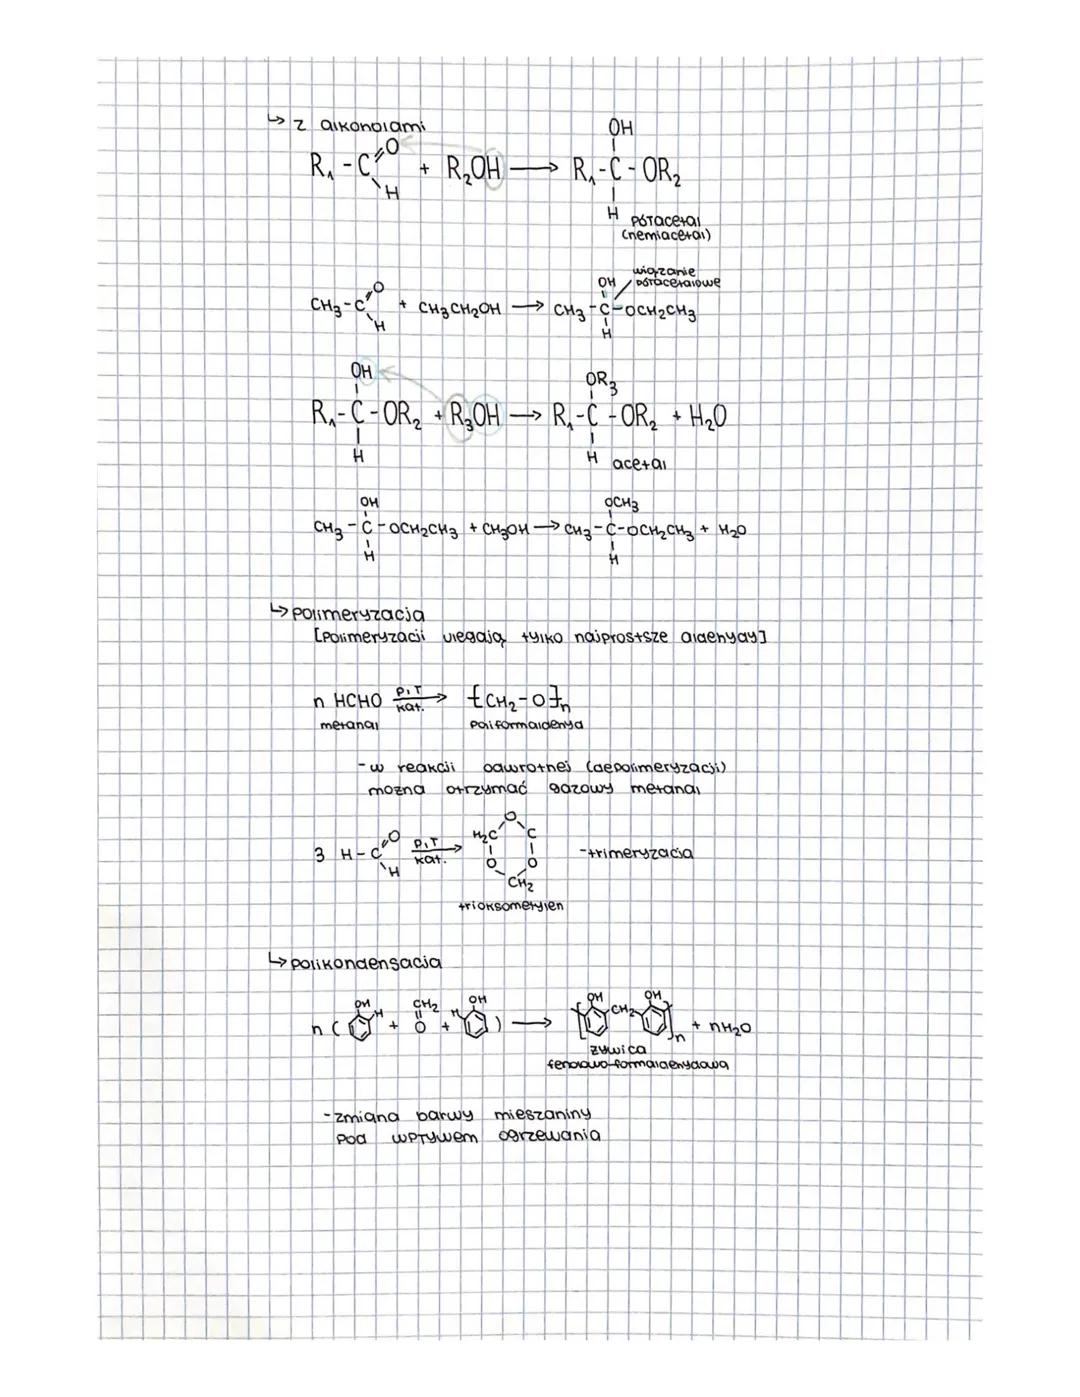 ↳ z alkoholami
R₁-C(=O)-H + R₂OH ⟶ R₁-C(OH)(H)-OR₂
półacetal
(hemiacetal)
wiązanie
półacetalowe
CH₃-C(=O)-H + CH₃CH₂OH ⟶ CH₃-C(OH)(H)-OCH₂CH₃
R₁-C(OH)(H)-OR₂ + R₃OH ⟶ R₁-C(OR₃)(H)-OR₂ + H₂O
acetal
CH₃-C(OH)(H)-OCH₂CH₃ + CH₃OH ⟶ CH₃-C(OCH₃)(H)-OCH₂CH₃ + H₂O
↳ polimeryzacja
[Polimeryzacji ulegają tylko najprostsze aldehydy]
n HCHO p,T kat. ⟶ [CH₂-O]n
metanal poliformaldehyd
-w reakcji odwrotnej (depolimeryzacji)
można otrzymać gazowy metanal
3 H-C(=O)-H p,T kat. ⟶ H₂C O C O CH₂ O -trimeryzacja
trioksometylen
↳ polikondensacja
n ( OH H + CH₂ = O + H OH ) ⟶ [ OH CH₂ OH ]n + nH₂O
żywica
fenolowo-formaldehydowa
-zmiana barwy mieszaniny
pod wpływem ogrzewania